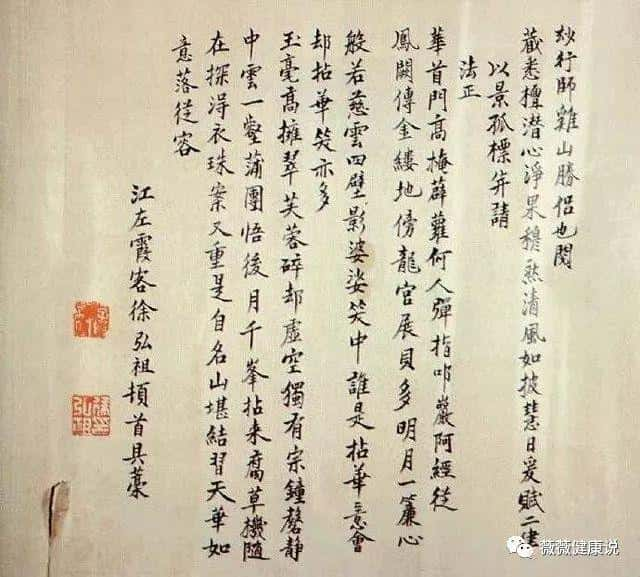 玅行師雞山勝侶也閱
藏悉檀潛心淨果穆然清風如披慧日爰賦二律
以景孤標并請
法正
華首門高掩薜蘿何人彈指叩巖阿經從
鳳闕傳金縷地傍龍宮展貝多明月一簾心
般若慈雲四壁影婆娑笑中誰是拈華意會
却拈華笑亦多
玉毫高擁翠芙蓉碎却虛空獨有宗鐘磬靜
中雲一壑蒲團悟後月千峯拈来腐草機隨
在探淂衣珠案又重是自名山堪結習天華如
意落從容
江左霞客徐弘祖頓首具藁
薇薇健康说